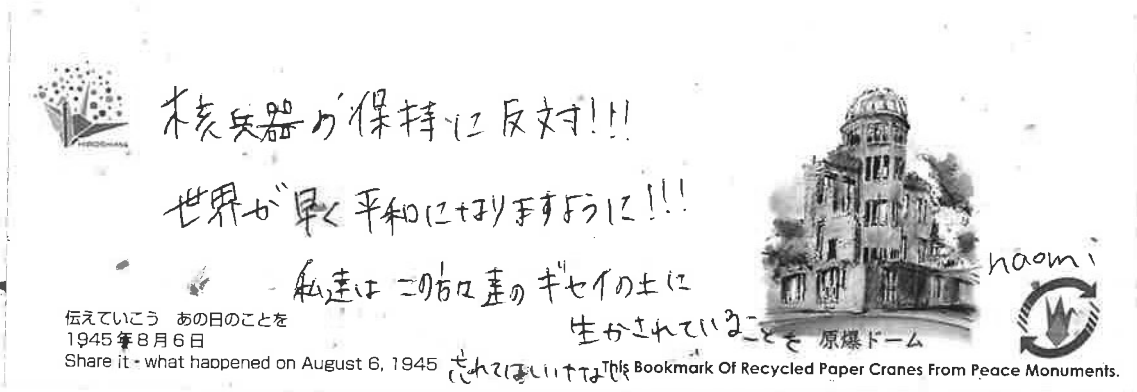 HIROSHIMA
核兵器の保持に反対!!!
世界が早く平和になりますように!!!
私達はこの方々達のギセイの土に
生かされていることを
忘れてはいけない
naomi
原爆ドーム
伝えていこう あの日のことを
1945年8月6日
Share it - what happened on August 6, 1945
This Bookmark Of Recycled Paper Cranes From Peace Monuments.